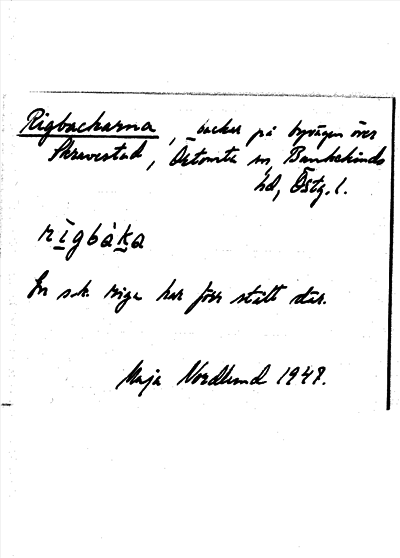 Rigbackarna, backar på byvägen över
Skravestad, Östomta sn, Bankekinds
hd, Östg. l.
rìgbàka
En s.k. riga har förr stått där.
Maja Nordlund 1948.